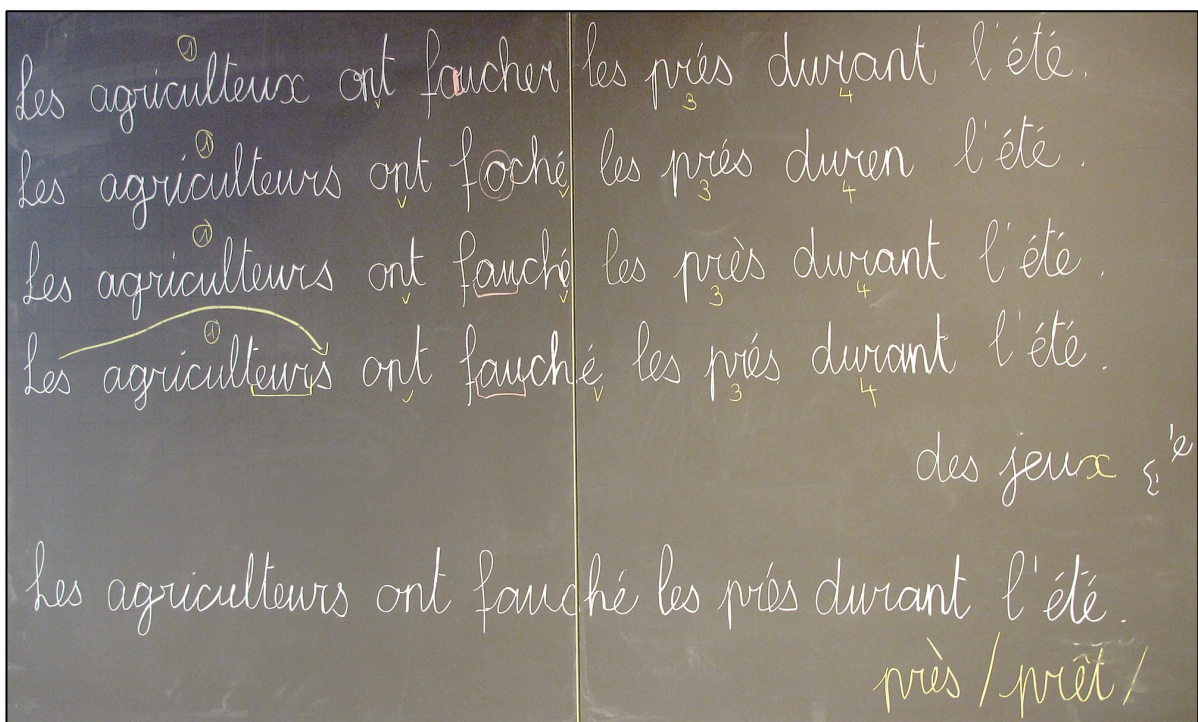 Les agriculteux ont faucher les prés durant l'été.
Les agriculteurs ont foché les prés duren l'été.
Les agriculteurs ont fauché les près durant l'été.
Les agriculteurs ont fauché les prés durant l'été.
des jeux
Les agriculteurs ont fauché les prés durant l'été.
près / prêt /